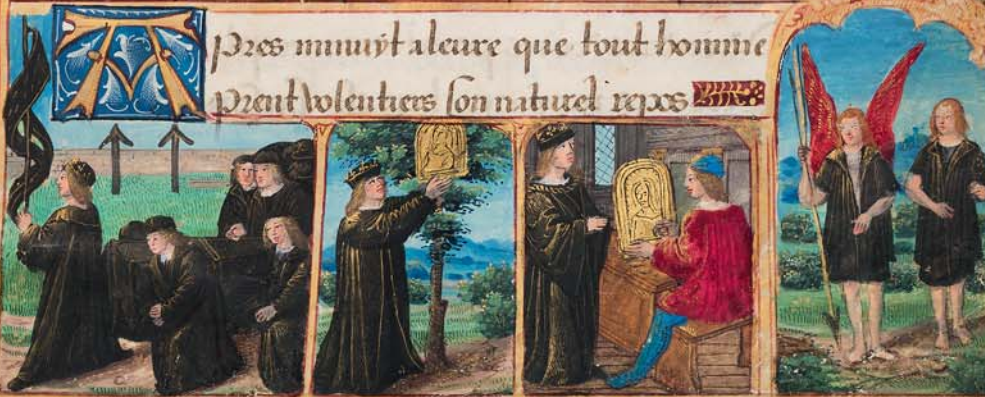 Apres minuyt aleure que tout homme
prent volentiers son naturel repos